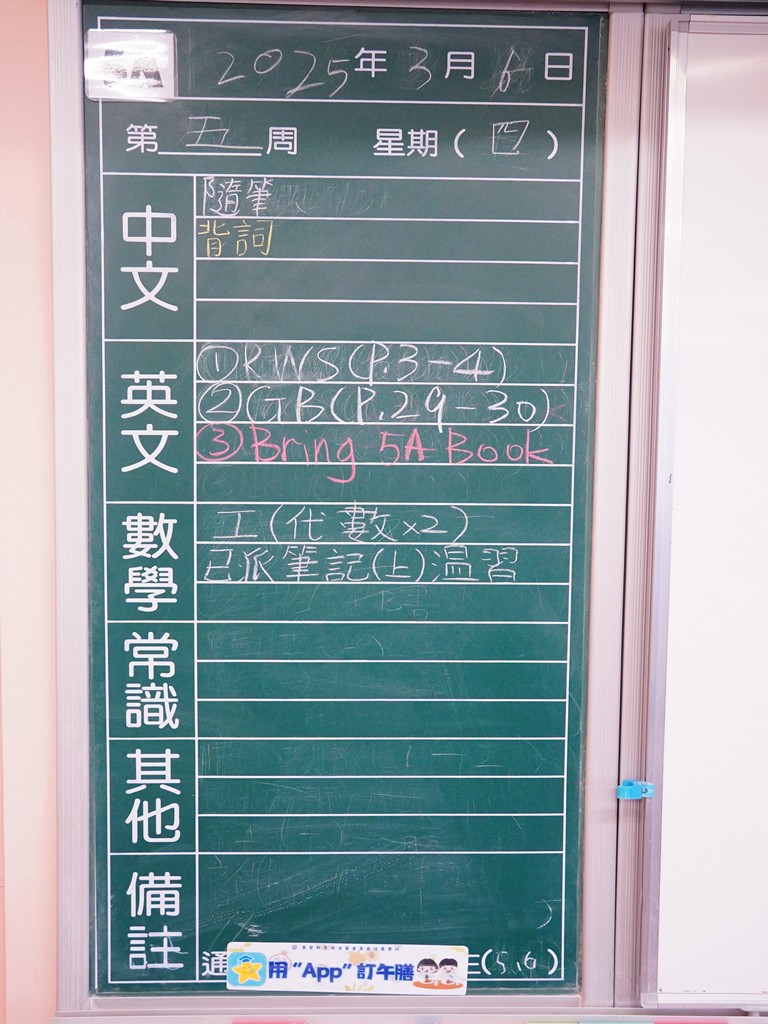 5A
2025年3月6日
第五周 星期(四)
中文
隨筆
背詞
英文
①RWS(P.3-4)
②GB(P.29-30)
③Bring 5A Book
數學
工(代數×2)
已派筆記(上)温習
常識
其他
備註
通
(5,6)
用“App”訂午膳